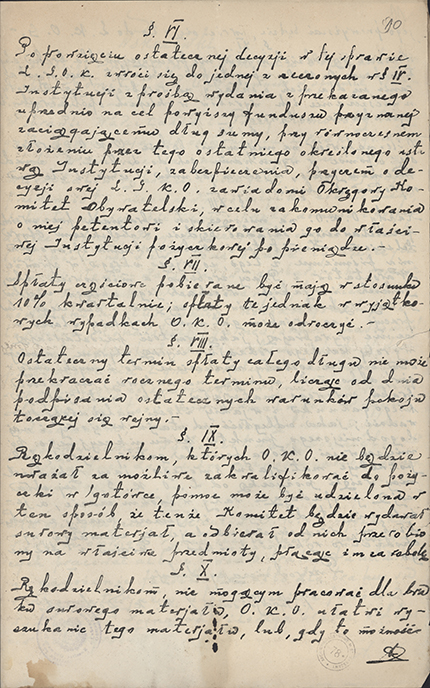 10
§. VI
Po powzięciu ostatecznej decyzji w tej sprawie
L. S. O. K. zwróci się do jednej z rzeczonych w § IV.
Instytucji z prośbą wydania z przekazanego
uprzednio na cel powyższy funduszu przyznanej
zaciągającemu dług sumy, przy równoczesnem
złożeniu przez tego ostatniego określonego
Instytucji, zabezpieczenia, przyczem o de-
cyzji swej L. S. K. O. zawiadomi Okręgowy Ko-
mitet Obywatelski, w celu zakomunikowania
o niej petentowi i skierowania go do właści-
wej Instytucji pożyczkowej po pieniądze.-
§. VII.
Spłaty częściowe pobierane być mają w stosunku
10% kwartalnie; spłaty te jednak w wyjątko-
wych wypadkach O. K. O. może odroczyć.-
§. VIII.
Ostateczny termin spłaty całego długu nie może
przekraczać rocznego terminu, licząc od dnia
podpisania ostatecznych warunków pokoju
toczącej się wojny.-
§. IX.
Rękodzielnikom, których O. K. O. nie będzie
uważał za możliwe zakwalifikować do poży-
czki w gotówce, pomoc może być udzielona w
ten sposób że tenże Komitet będzie wydawał
surowy materjał, a odbierał od nich przerobio
ny na właściwe przedmioty, płacąc im za robotę
§. X.
Rękodzielnikom, nie mogącym pracować dla bra
ku surowego materjału, O. K. O. ułatwi wy-
szukanie tego materjału, lub, gdy to możność